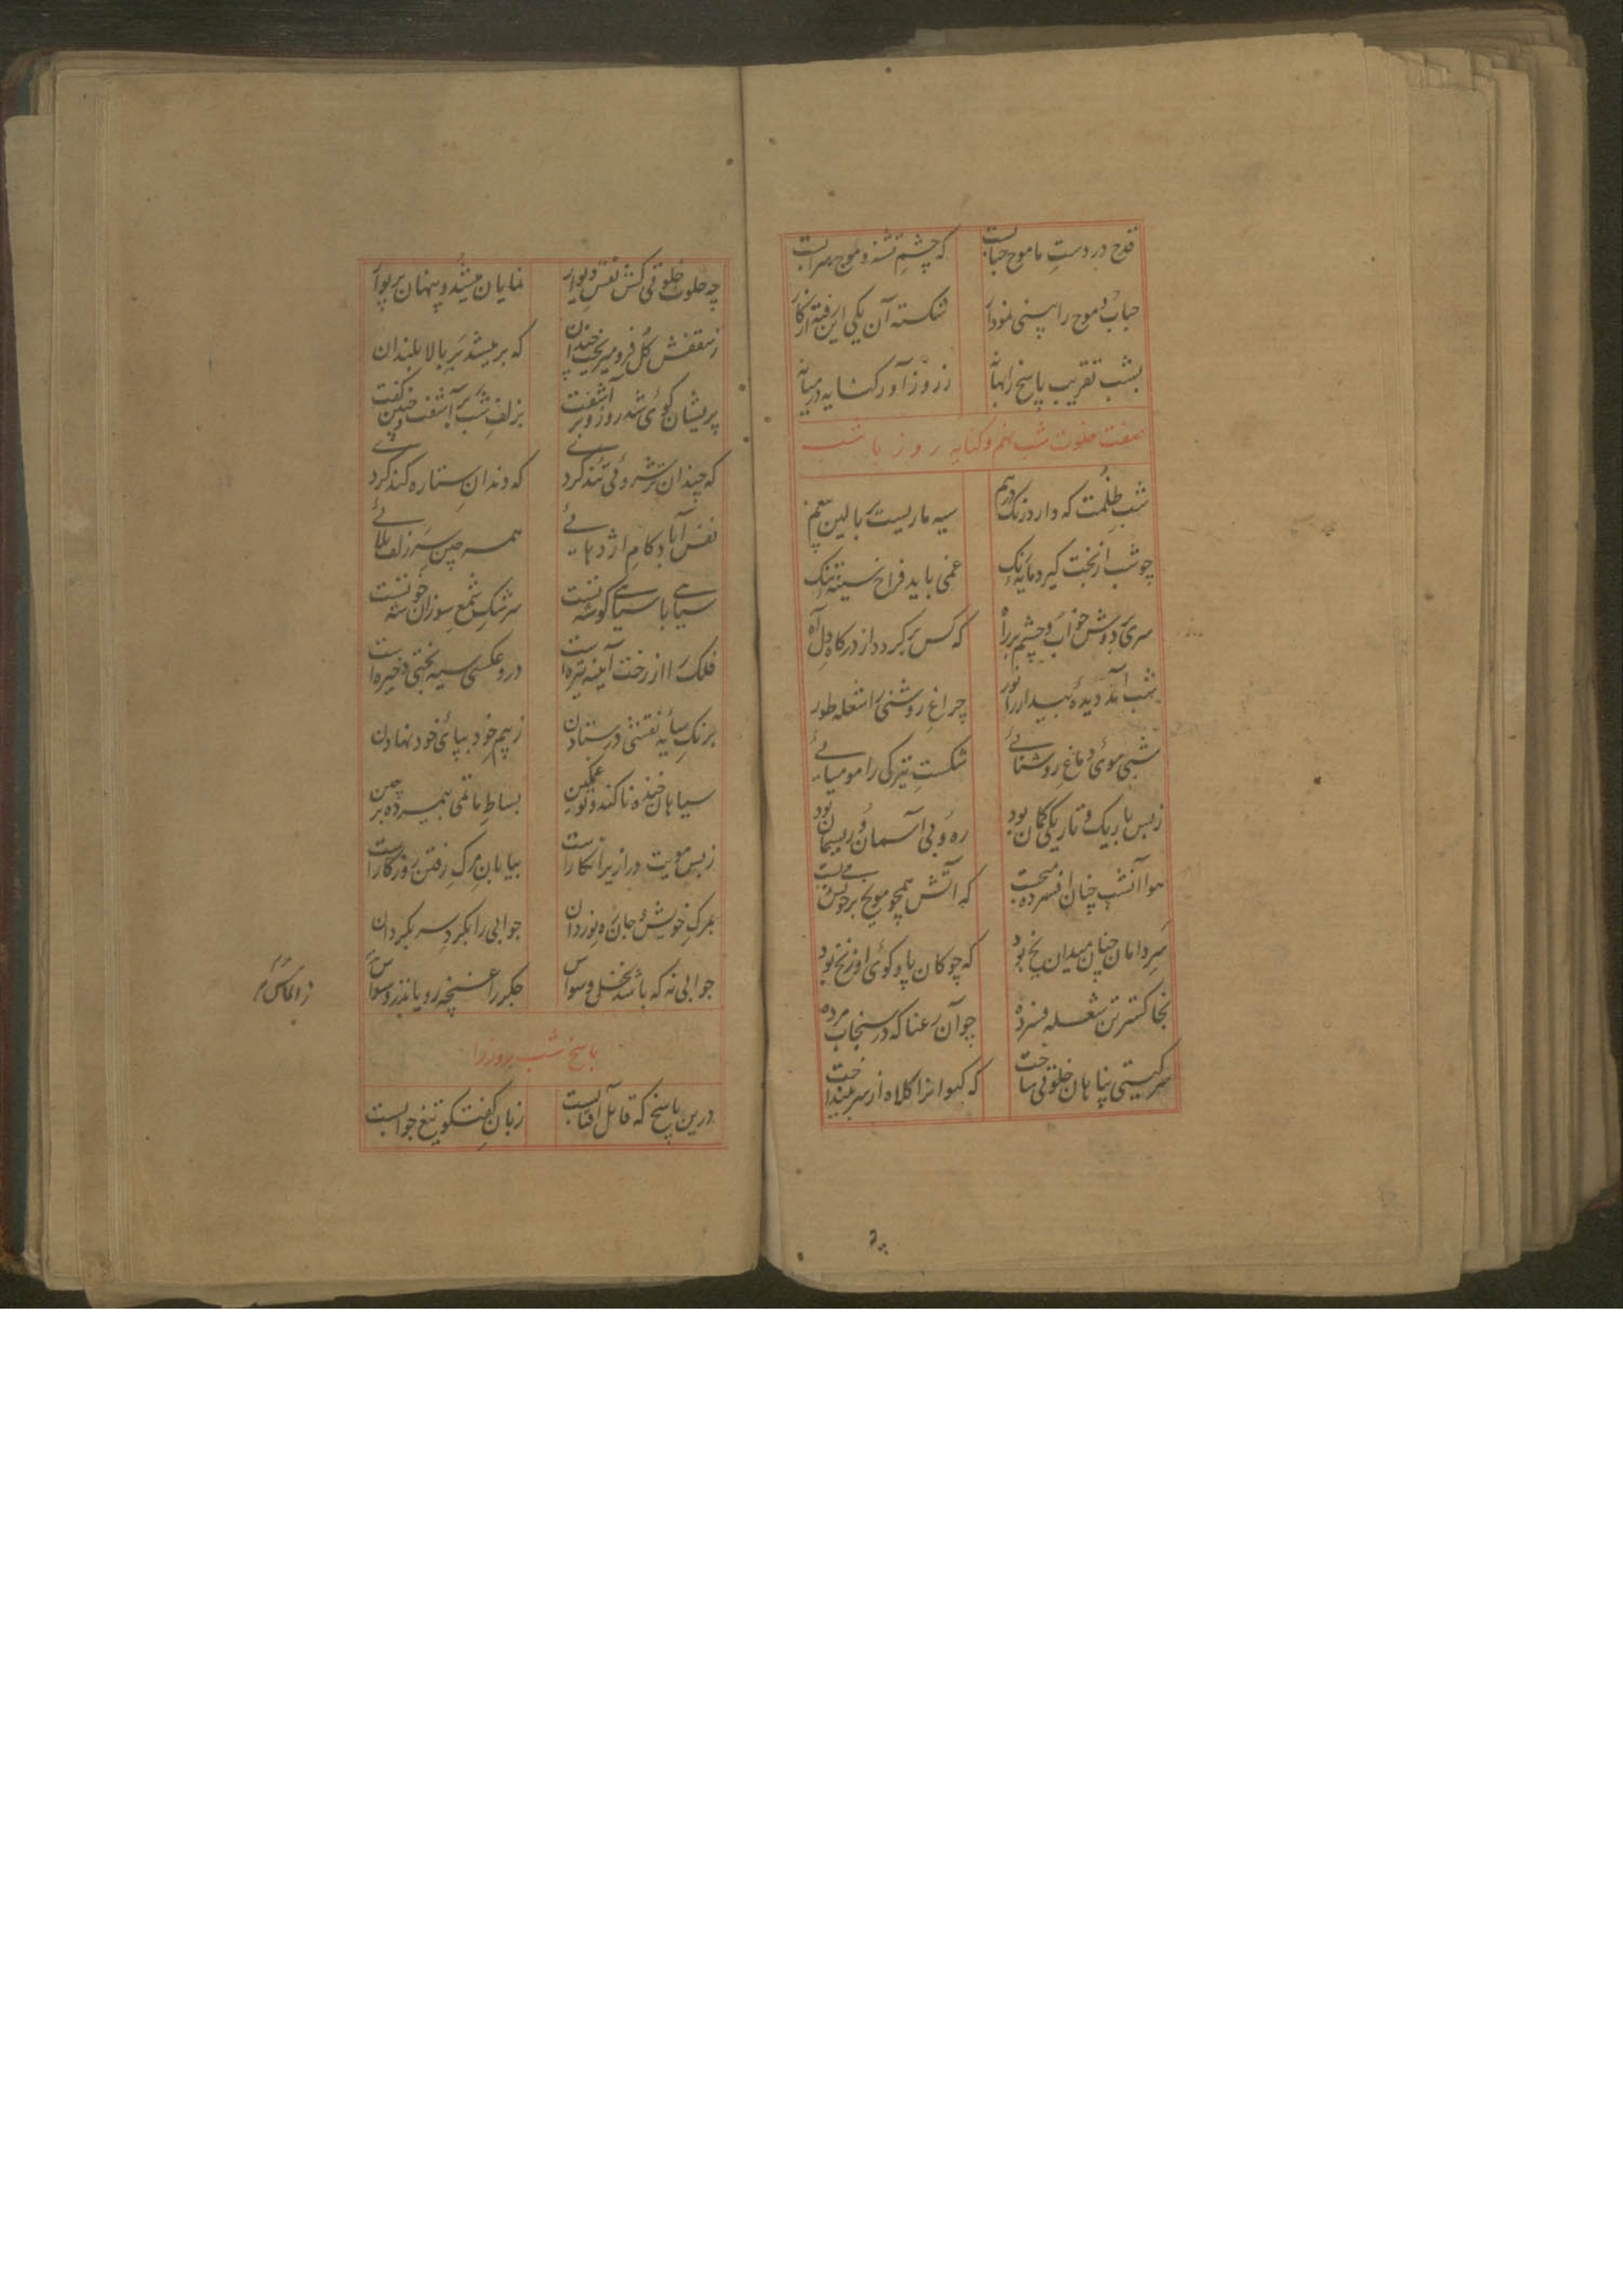 قدح در دست ما موج حبابست که چشم تشنه و موج سرابست
حباب و موج را بینی نمودار شکسته آن یکی این رفته از کار
بشب تقریب پاسخ را بهانه ز روز آور کنایه در میانه
صفت خلوت شب نهم و کنایه روز با شب
شب ظلمت که دارد زنگ درهم سیه ماریست بر بالین
چو شب از بخت گیرد مایه رنگ غمی باید فراخ سینه تنگ
سری بر دوش خواب و چشم بر راه که کس برگردد از درگاه دل آه
شب آمد دیده بیدار را نور چراغ روشنی را شعله طور
شبی موی دماغ روشنائی شکست تیرگی را مومیائی
ز بس باریک و تاریکی گمان بود ره وبی آسمان و ریسمان بود
هوا آنشب چنان افسرده که آتش همچو موی بر خویش
سر دامان چنان میدان یخ بود که چوگان پا و گوی او زنخ بود
بخاکستر تن شعله فسرده چو آن رعنا که در سنجاب مرده
سر گیتی پناهان خلوتی ساخت که کیوانرا کلاه از سر بینداخت
چه خلوت خلوتی کش نقش دیوار نمایان میشد و پنهان پریوار
ز سقفش گل فرو میریخت چندان که بر میشد بر بالا بلندان
پریشان گوئی شد روز و بر آشفت بزلف شب بر آشفت و چنین گفت
که چندان ترشروئی تند کردی که دندان ستاره کند کردی
نفس آباد کام اژدهائی همه چین سر زلف بلائی
سیاهی با سیاهی گوشه تست سرشک شمع سوزان خوشه تست
فلک را از رخت آیینه تیره است درو عکسی سیه بختی ذخیره است
برنگ سایه نقشی در ستادن ز بیم خود بپای خود نهادن
سیاهان خنده ناک‌اند و تو غمگین بساط ماتمی بر چین
ز بس مویت درازیرا نگار است بیابان مرگ رفتن روزگار است
بمرگ خویش و جان ره نوردان جوابی را بگرد سر بگردان
جوابی نه که باشد نخل وسواس جگر را غنچه رویاند ز وسواس
ز الماس
پاسخ شب روز را
درین پاسخ که قاتل آفتابست زبان گفتگو تیغ جوابست